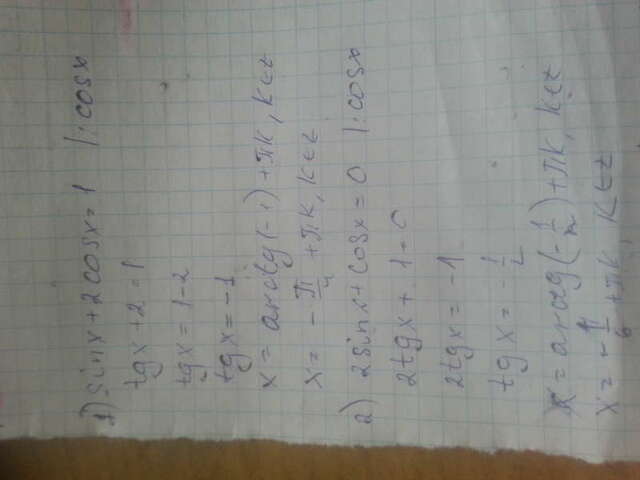 1) sinx + 2cosx = 1 | : cosx
tgx + 2 = 1
tgx = 1 - 2
tgx = -1
x = arctg(-1) + πk, k∈z
x = -π/4 + πk, k∈z
2) 2sinx + cosx = 0 | : cosx
2tgx + 1 = 0
2tgx = -1
tgx = -1/2
x = arctg(-1/2) + πk, k∈z
x = -π/6 + πk, k∈z